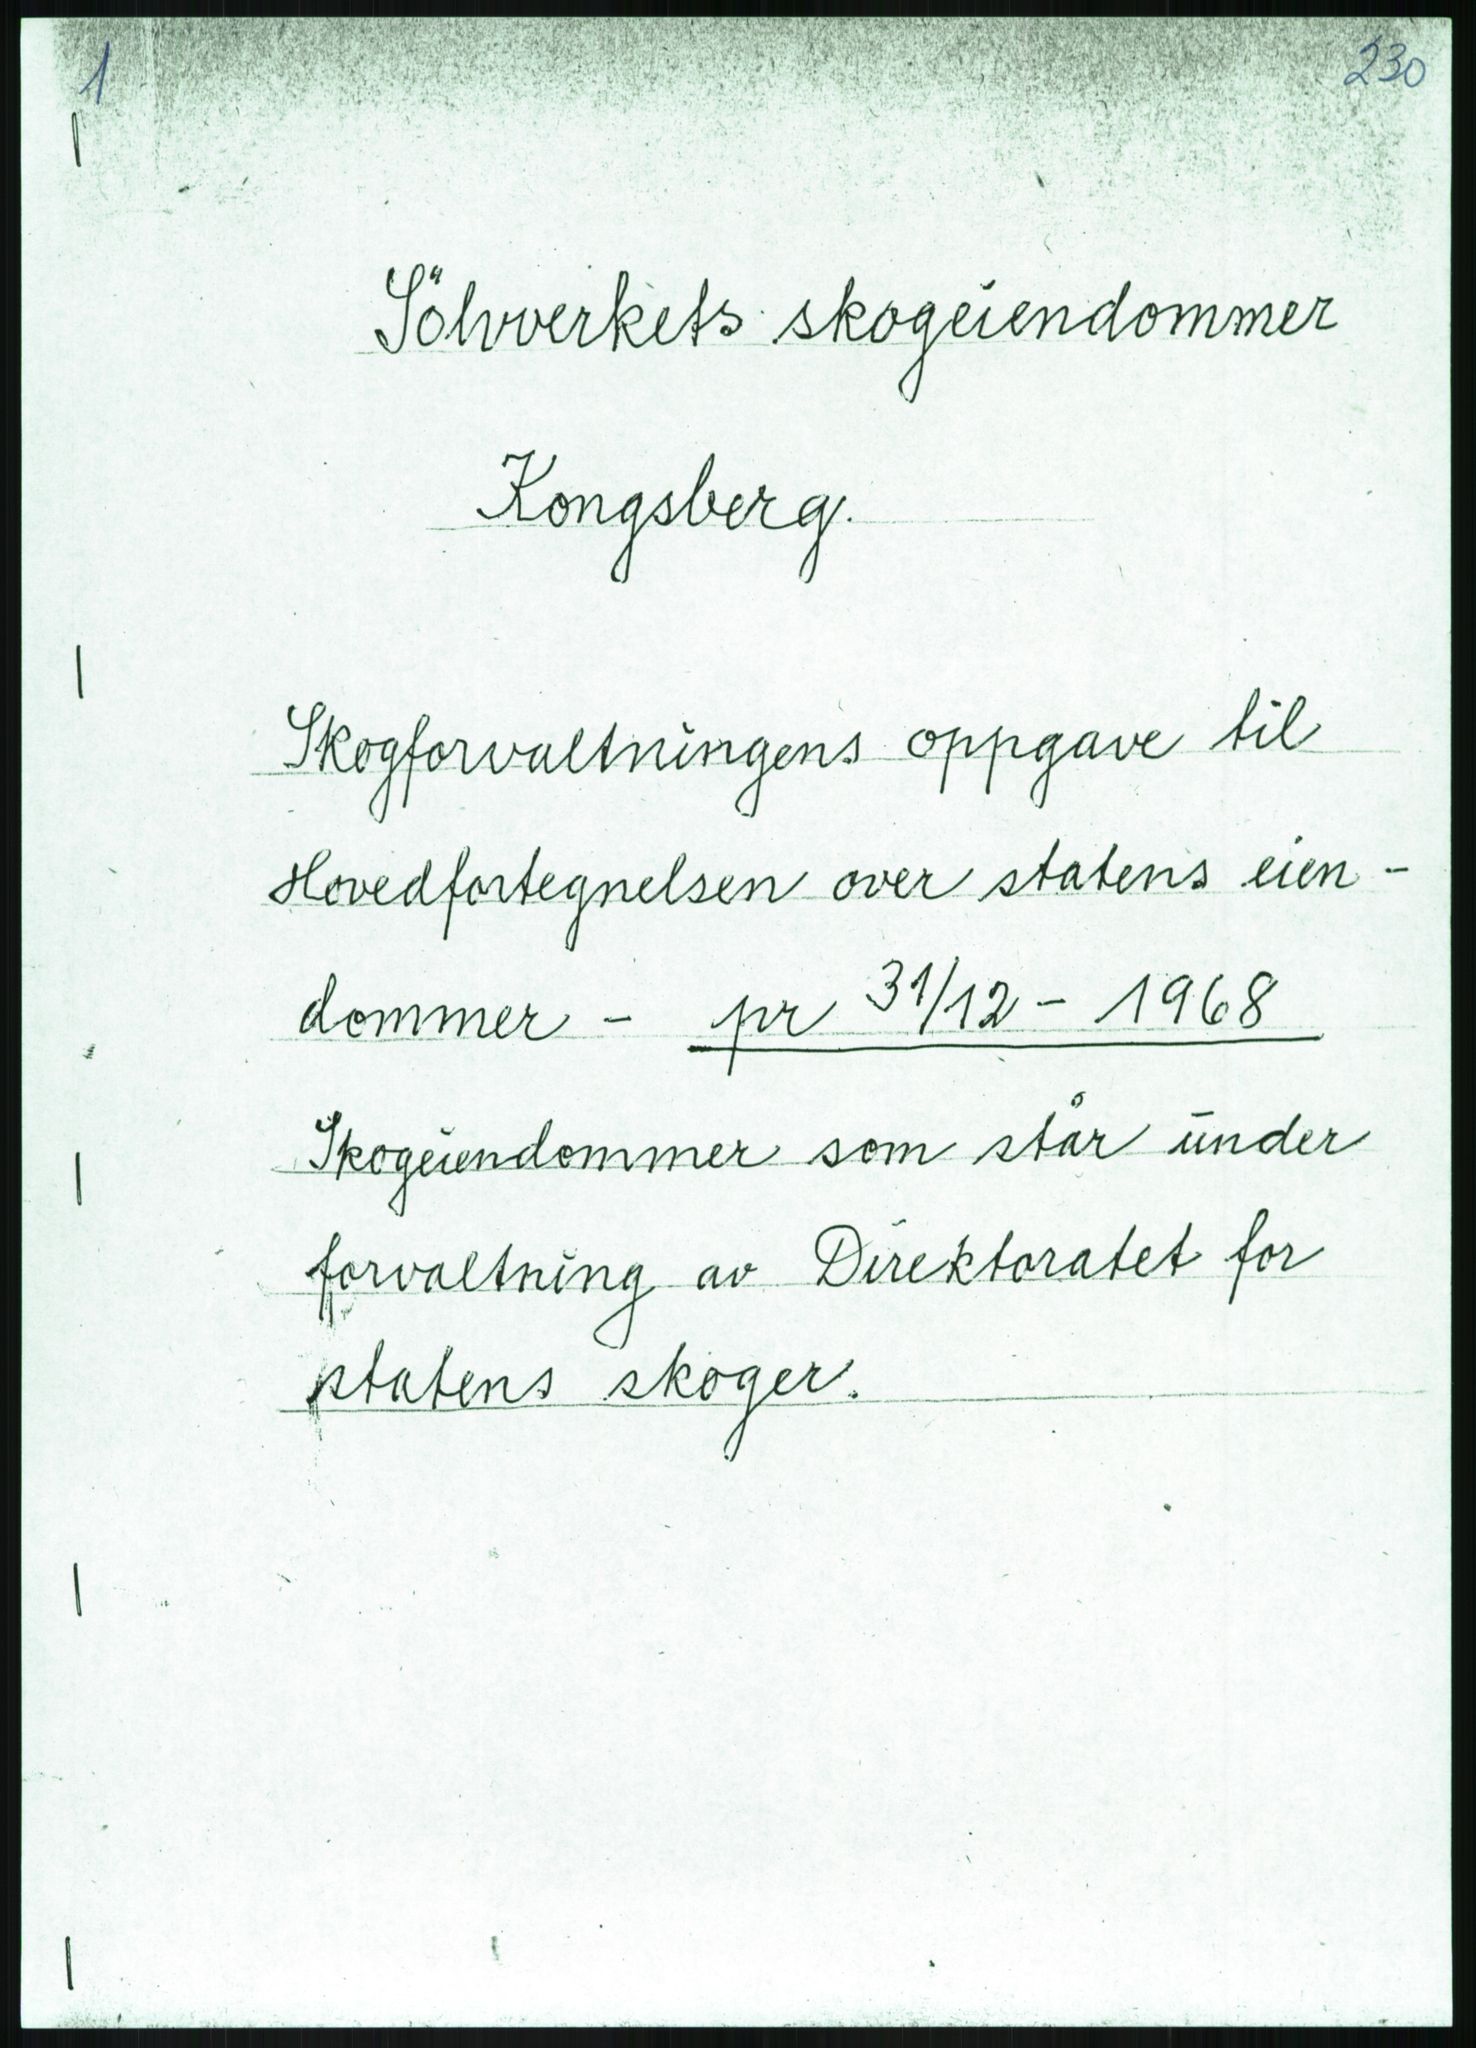 1
230
Sölvverkets skogeiendommer
Kongsberg.
Skogforvaltningens oppgave til
Hovedfortegnelsen over statens eien-
dommer - pr 31/12 - 1968
Skogeiendommer som står under
forvaltning av Direktoratet for
statens skoger.